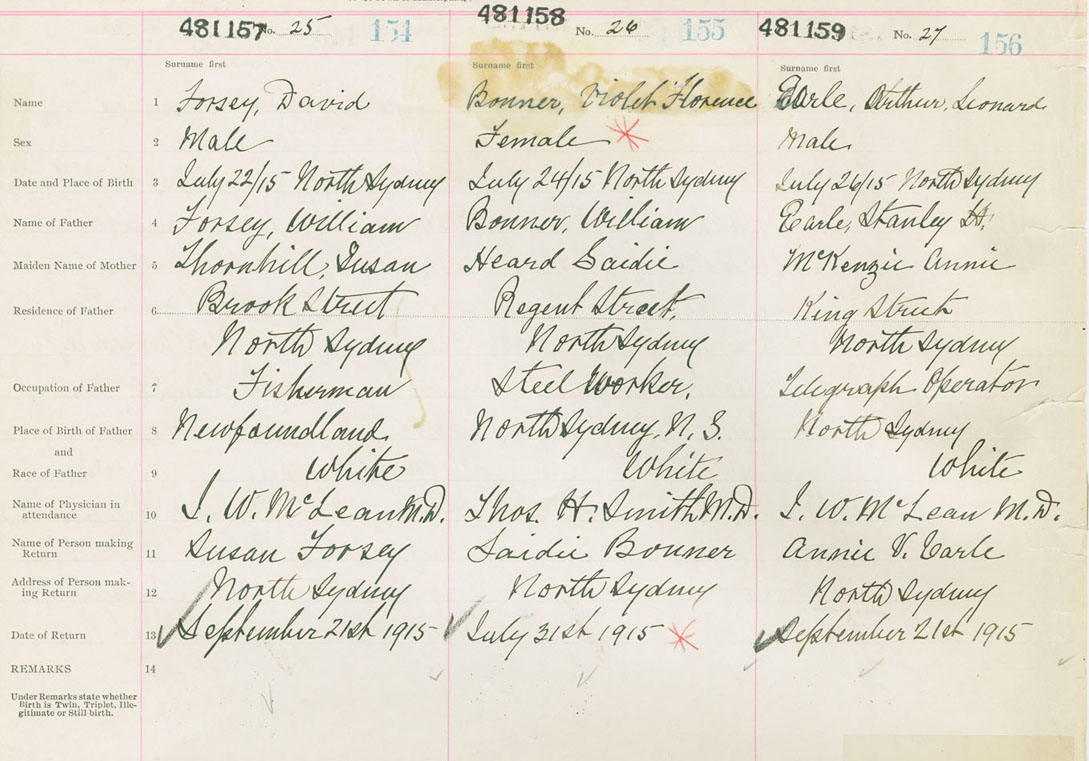 481157 No. 25 154 481158 No. 26 155 481159 No. 27 156
Surname first Surname first Surname first
Name 1 Forsey, David Bonner, Violet Florence Earle, Arthur, Leonard
Sex 2 Male Female Male
Date and Place of Birth 3 July 22/15 North Sydney July 24/15 North Sydney July 26/15 North Sydney
Name of Father 4 Forsey, William Bonner, William Earle, Stanley
Maiden Name of Mother 5 Thornhill, Susan Heard Saidie McKenzie Annie
Residence of Father 6 Brook Street Regent Street, King Street
North Sydney North Sydney North Sydney
Occupation of Father 7 Fisherman Steel Worker, Telegraph Operator
Place of Birth of Father 8 Newfoundland North Sydney, N. S. North Sydney
and
Race of Father 9 White White White
Name of Physician in
attendance 10 J. W. McLean M.D. Thos. H. Smith M.D. J. W. McLean M.D.
Name of Person making
Return 11 Susan Forsey Saidie Bonner Annie V. Earle
Address of Person mak-
ing Return 12 North Sydney North Sydney North Sydney
Date of Return 13 September 21st 1915 July 31st 1915 September 21st 1915
REMARKS 14
Under Remarks state whether
Birth is Twin, Triplet, Ille-
gitimate or Still birth.